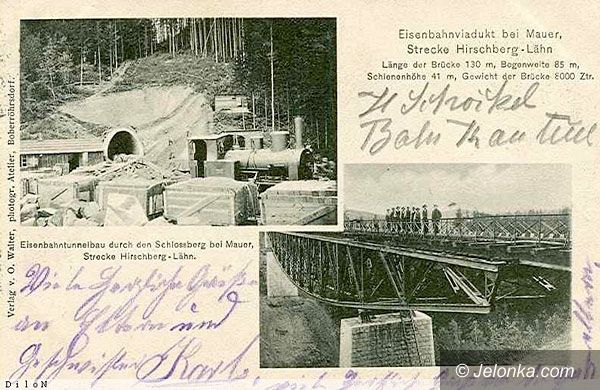 Eisenbahnviadukt bei Mauer,
Strecke Hirschberg-Lähn
Länge der Brücke 130 m, Bogenweite 85 m,
Schienenhöhe 41 m, Gewicht der Brücke 8000 Ztr.
H Schröckel
Bahn
Verlag v. O. Walter, photogr. Atelier, Boberröhrsdorf.
Eisenbahntunnelbau durch den Schlossberg bei Mauer,
Strecke Hirschberg-Lähn.
Viele herzliche Grüße
an Eltern und
Geschwister Karl
DiloN
© Jelonka.com